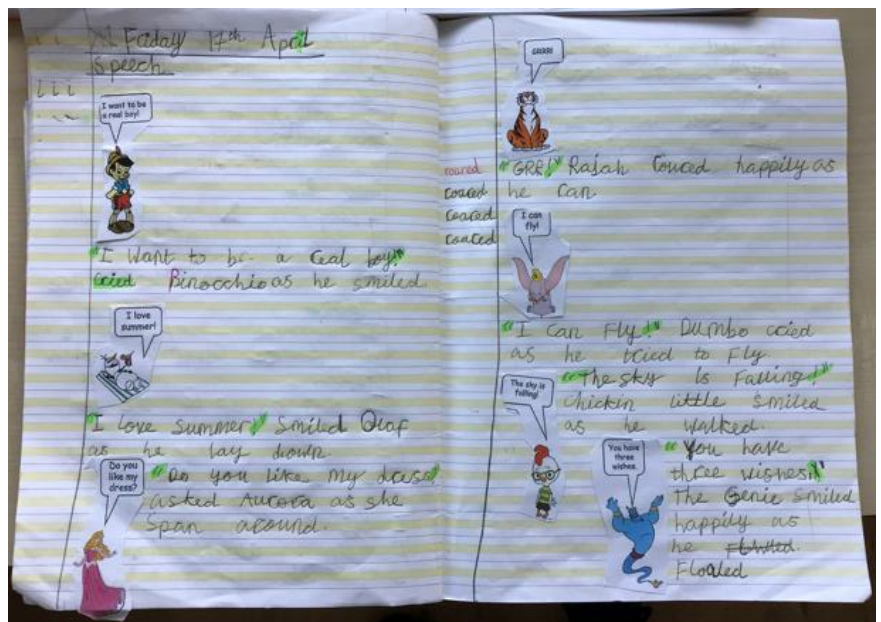 Friday 17th April
Speech
I want to be
a real boy!
"I want to be a real boy!"
cried Pinocchio as he smiled
I love
summer!
"I love summer!" Smiled Olaf
as he lay down.
Do you
like my
dress?
"Do you like my dress?"
asked Aurora as she
Span around.
GRRR!
roared
roared
roared
roared
"GRR!" Rajah roared happily as
he can
I can
fly!
"I can Fly!" Dumbo cried
as he tried to Fly.
The sky is
falling!
"The sky is Falling!"
chickin little Smiled
as he walked.
You have
three
wishes.
"You have
three wishes!"
The Genie Smiled
happily as
he
Floated